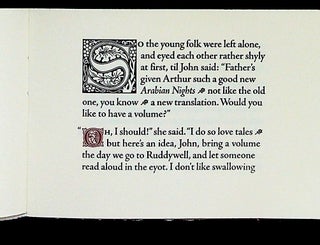 So the young folk were left alone,
and eyed each other rather shyly
at first, til John said: “Father’s
given Arthur such a good new
Arabian Nights ☙ not like the old
one, you know ☙ a new translation. Would you
like to have a volume?”
“Oh, I should!” she said. “I do so love tales ☙
but here’s an idea, John, bring a volume
the day we go to Ruddywell, and let someone
read aloud in the eyot. I don’t like swallowing